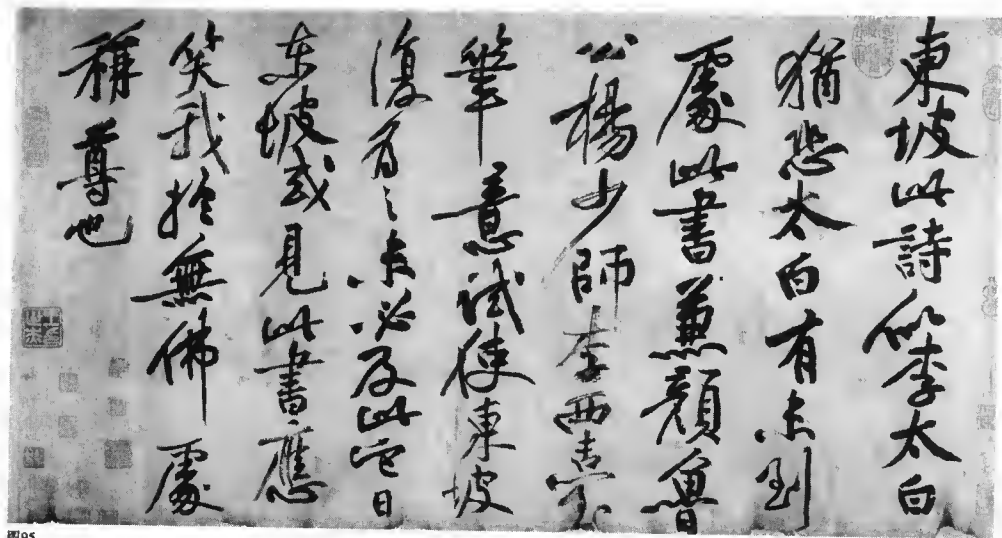 東坡此詩似李太白
猶恐太白有未到
處此書兼顏魯
公楊少師李西臺
筆意試使東坡
復為之未必及此它日
东坡或見此書應
笑我於無佛處
稱尊也
图95